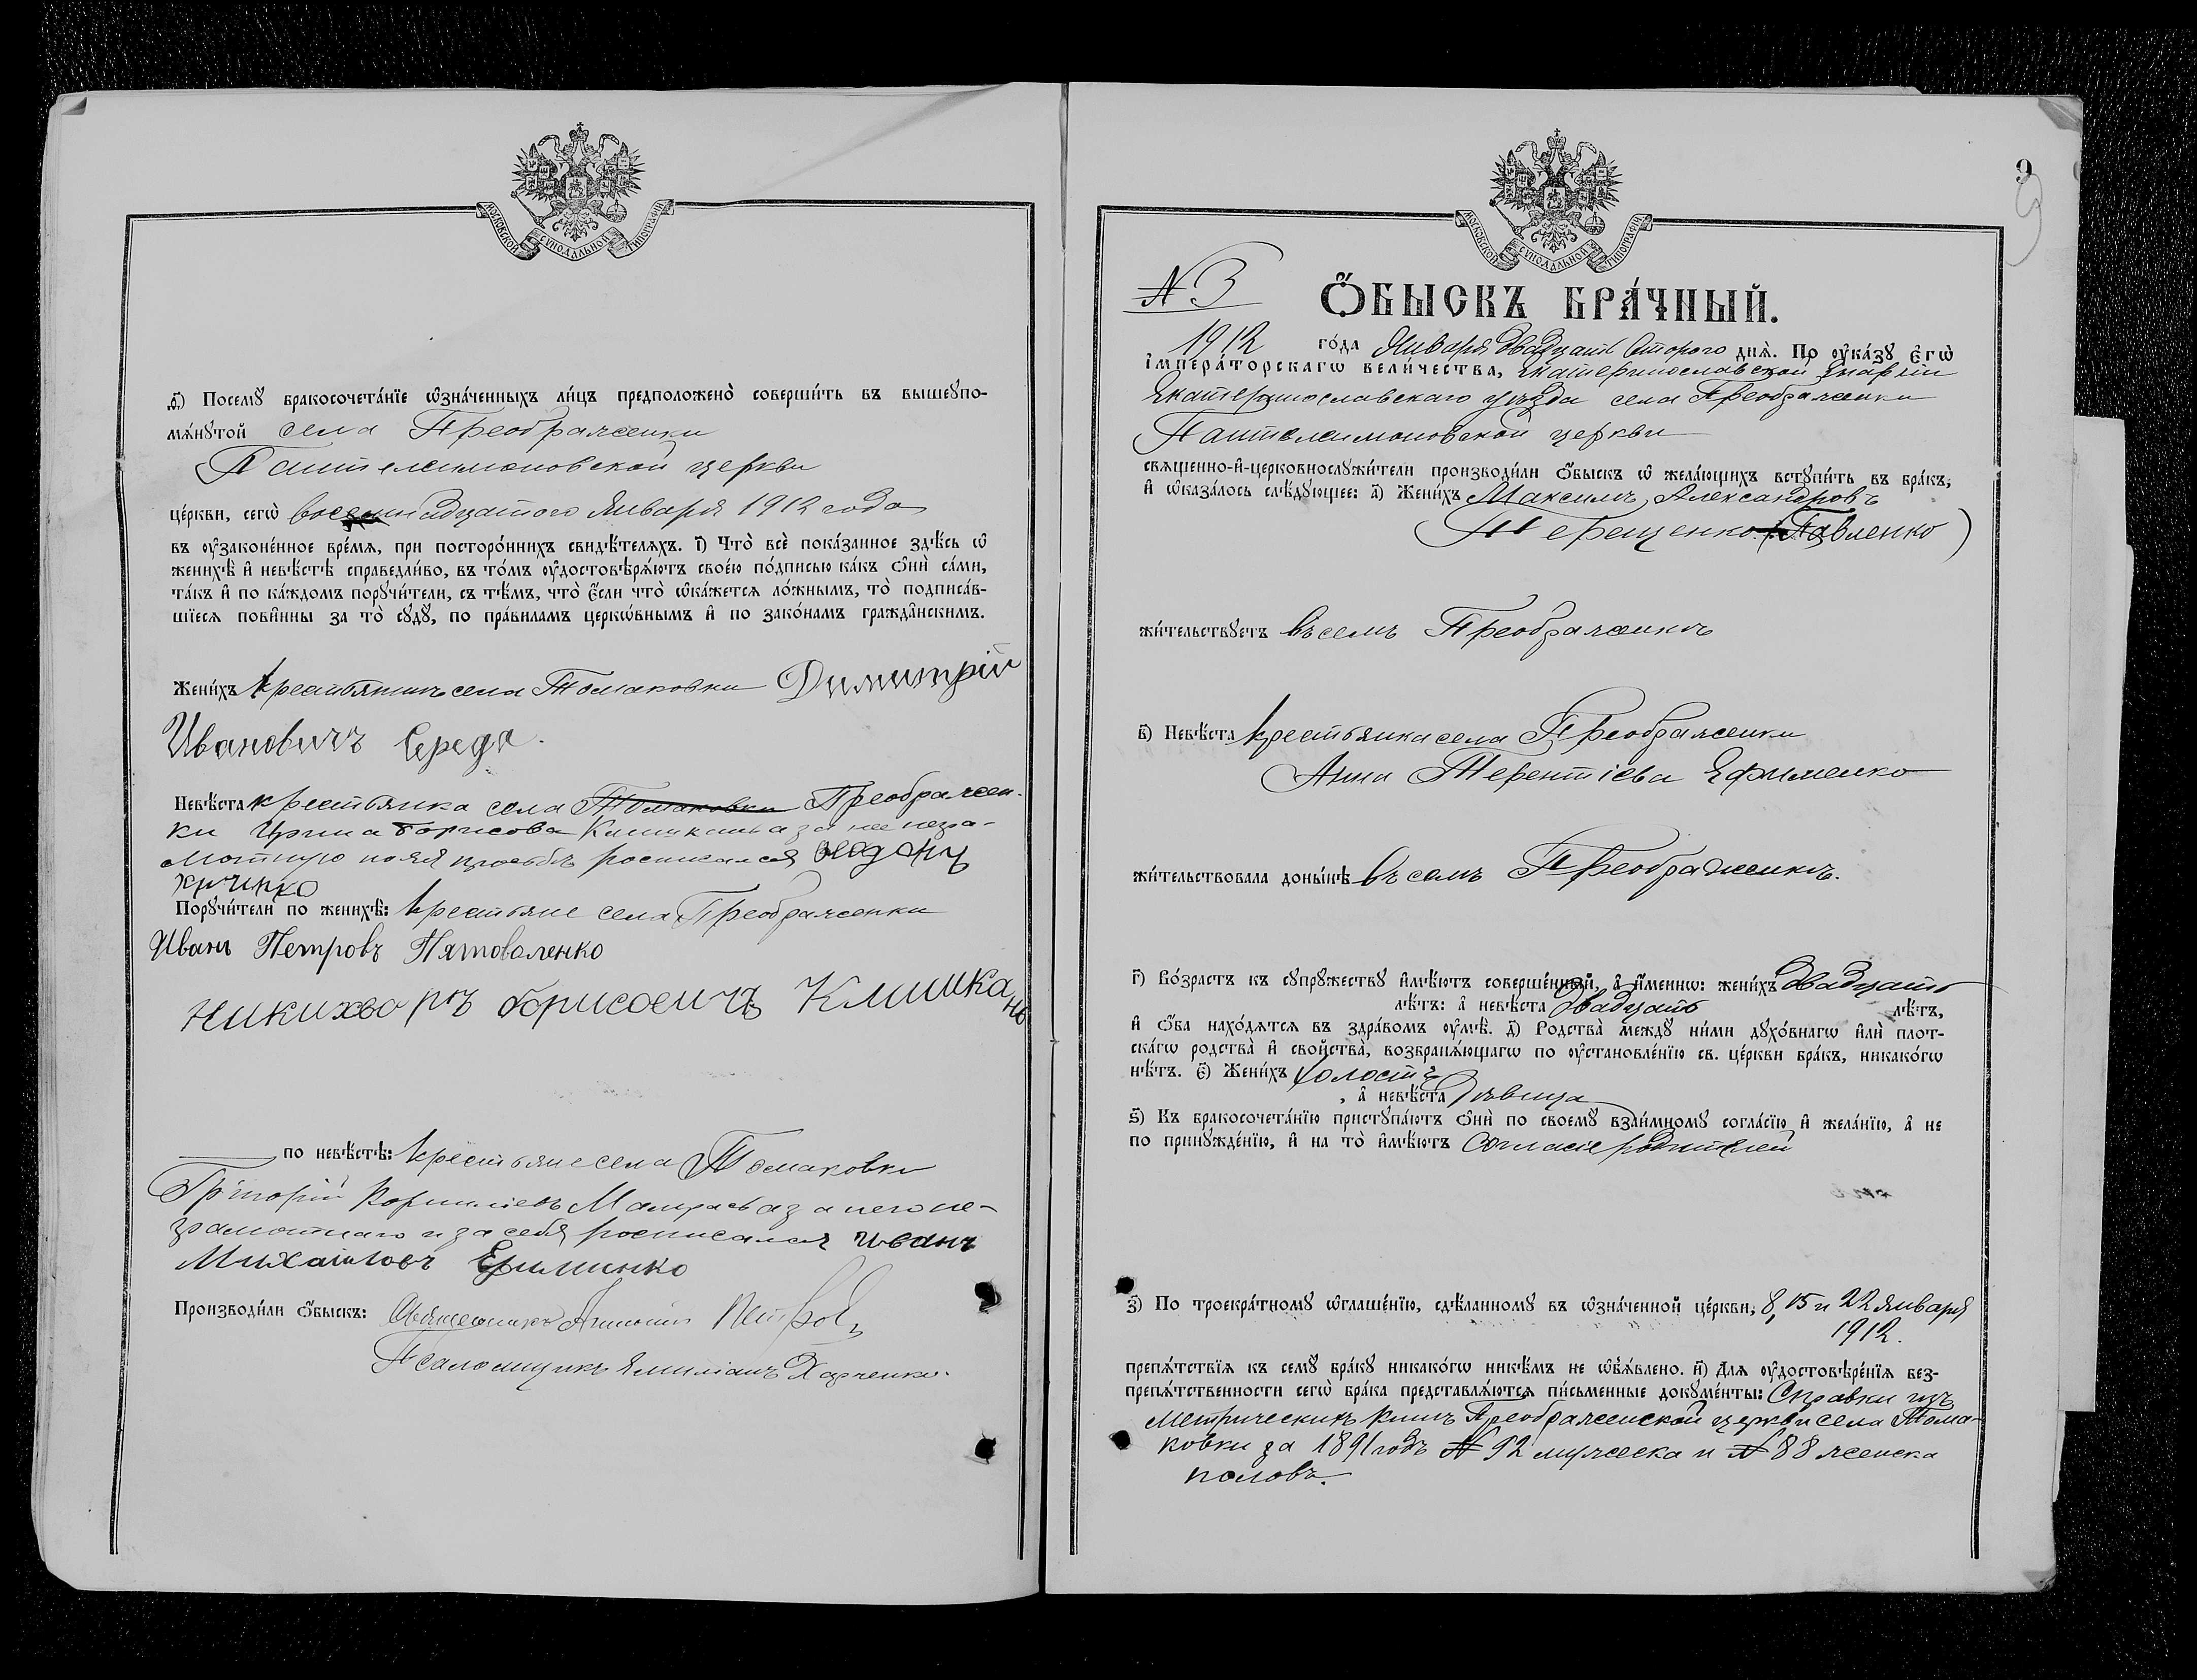 МОСКОВСКОЙ СѴНОДАЛЬНОЙ ТИПОГРАФІИ
ѳ҃) Посемꙋ̀ бракосочета́нїе ѡ҆зна́ченныхъ ли́цъ предположено̀ соверши́ть въ вышеꙋпо-
мѧ́нꙋтой села Преображенки
Пантелеимоновской церкви
це́ркви, сегѡ̀ восемнадцатого Января 1912 года
въ ᲂу҆законе́нное вре́мѧ, при посторо́ннихъ свидѣ́телѧхъ. і҃) Что̀ всѐ пока́занное здѣ́сь ѡ҆
женихѣ̀ и҆ невѣ́стѣ справедли́во, въ то́мъ ᲂу҆достовѣрѧ́ютъ свое́ю по́дписью ка́къ ѻ҆нѝ са́ми,
та́къ и҆ по ка́ждомъ порꙋчи́тели, съ тѣ́мъ, что̀ є҆́сли что̀ ѡ҆ка́жетсѧ ло́жнымъ, то̀ подписа́в-
шїесѧ пови́нны за то̀ сꙋдꙋ̀, по пра́виламъ церкѡ́внымъ и҆ по зако́намъ гражда̑нскимъ.
Жени́хъ Крестьянинъ села Томаковки Димитрій
Ивановичъ Середа.
Невѣ́ста крестьянка села Томаковки Преображен-
ки Ирина Борисова Клишкань а за нее негра-
мотную по ея просьбѣ росписался
Порꙋчи́тели по женихѣ̀: Крестьяне села Преображенки
Иванъ Петровъ Пятоваленко
никихворъ борисовичъ Клишкань
по невѣ́стѣ: Крестьяне села Томаковки
Григорій Корнилiевъ а за него не-
грамотнаго и за себя росписался иванъ
Михаиловъ Ефименко
Производи́ли ѻ҆́быскъ: Священникъ Антоній Петровъ
Псаломщикъ Емиліанъ Харченко.
9
МОСКОВСКОЙ СѴНОДАЛЬНОЙ ТИПОГРАФІИ
№ 3
Ѻ҆́БЫСКЪ БРА́ЧНЫЙ.
1912 го́да Января двадцать второго днѧ̀. По ᲂу҆ка́зꙋ є҆гѡ̀
і҆мпера́торскагѡ вели́чества, Екатеринославской Епархіи
Екатеринославскаго уѣзда села Преображенки
Пантелеимоновской церкви
свѧще́нно-и҆-церковнослꙋжи́тели производи́ли ѻ҆́быскъ ѡ҆ жела́ющихъ встꙋпи́ть въ бра́къ,
и҆ ѡ҆каза́лось слѣ́дꙋющее: а҃) Жени́хъ Максимъ Александровъ
Терещенко (Павленко)
жи́тельствꙋетъ въ селѣ Преображенкѣ
в҃) Невѣ́ста Крестьянка села Преображенки
Анна Терентіева Ефименко
жи́тельствовала доны́нѣ въ селѣ Преображенкѣ.
г҃) Во́зрастъ къ сꙋпрꙋ́жествꙋ и҆мѣ́ютъ соверше́нный, а҆ и҆́меннѡ: жени́хъ двадцать
лѣ́тъ: а҆ невѣ́ста двадцать лѣ́тъ,
и҆ ѻ҆́ба нахо́дѧтсѧ въ здра́вомъ ᲂу҆мѣ̀. д҃) Родства̀ междꙋ̀ ни́ми дꙋхо́внагѡ и҆лѝ плот-
ска́гѡ родства̀ и҆ сво́йства, возбранѧ́ющагѡ по ᲂу҆становле́нїю св. це́ркви бра́къ, никако́гѡ
нѣ́тъ. є҃) Жени́хъ холостъ
, а҆ невѣ́ста дѣвица
ѕ҃) Къ бракосочета́нїю пристꙋпа́ютъ ѻ҆нѝ по своемꙋ̀ взаи́мномꙋ согла́сїю и҆ жела́нїю, а҆ не
по принꙋжде́нїю, и҆ на то̀ и҆мѣ́ютъ согласіе родителей
з҃) По троекра́тномꙋ ѡ҆глаше́нїю, сдѣ́ланномꙋ въ ѡ҆зна́ченной це́ркви, 8, 15 и 22 января
1912.
препѧ́тствїѧ къ семꙋ̀ бра́кꙋ никако́гѡ никѣ́мъ не ѡ҆б̾ѧ́влено. и҃) Длѧ ᲂу҆достовѣре́нїѧ без-
препѧ́тственности сегѡ̀ бра́ка представлѧ́ютсѧ пи́сьменные докꙋме́нты: Справки изъ
метрическихъ книгъ Преображенской церкви села Тома-
ковки за 1891 годъ № 92 мужеска и № 88 женска
половъ.